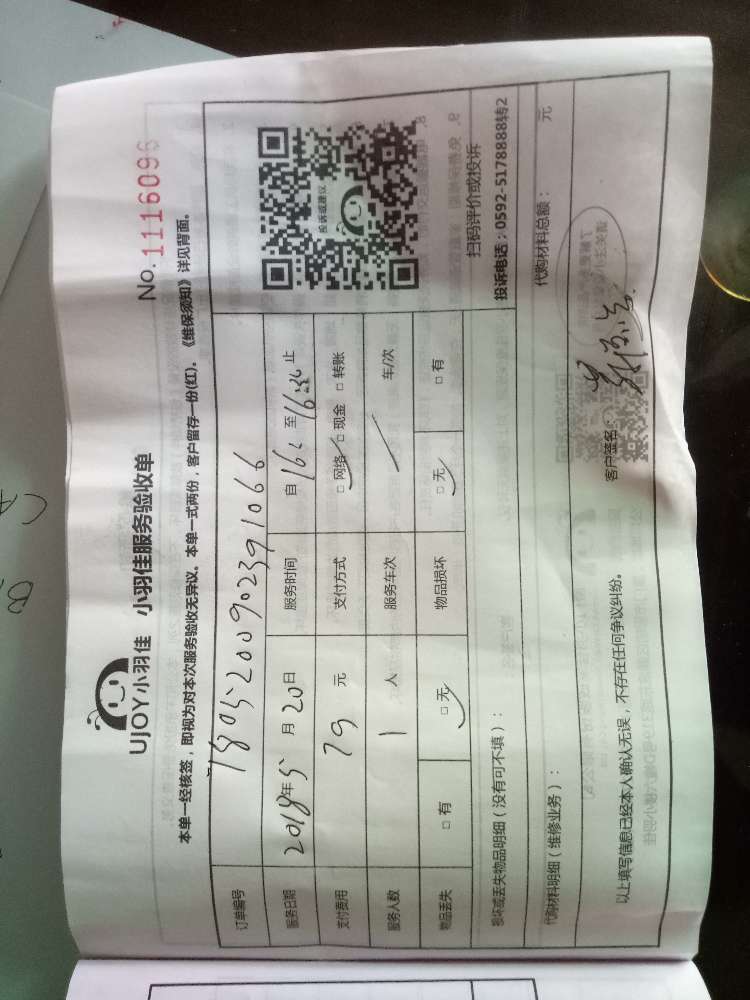 No. 1116096
UJOY小羽佳 小羽佳服务验收单
本单一经核签，即视为对本次服务验收无异议。本单一式两份，客户留存一份(红)。《维保须知》详见背面。
订单编号 180520090239 1066
服务日期 2018年5月20日 服务时间 自 16: 至 16:36 止
支付费用 79元 支付方式 □网络 □现金 □转账
服务人数 1人 服务车次 车/次
物品丢失 □有 □无 物品损坏 □无 □有
投诉或建议
扫码评价或投诉
投诉电话：0592-5178888转2
损坏或丢失物品明细（没有可不填）：
代购材料明细（维修业务）： 代购材料总额： 元
以上填写信息已经本人确认无误，不存在任何争议纠纷。 客户签名：